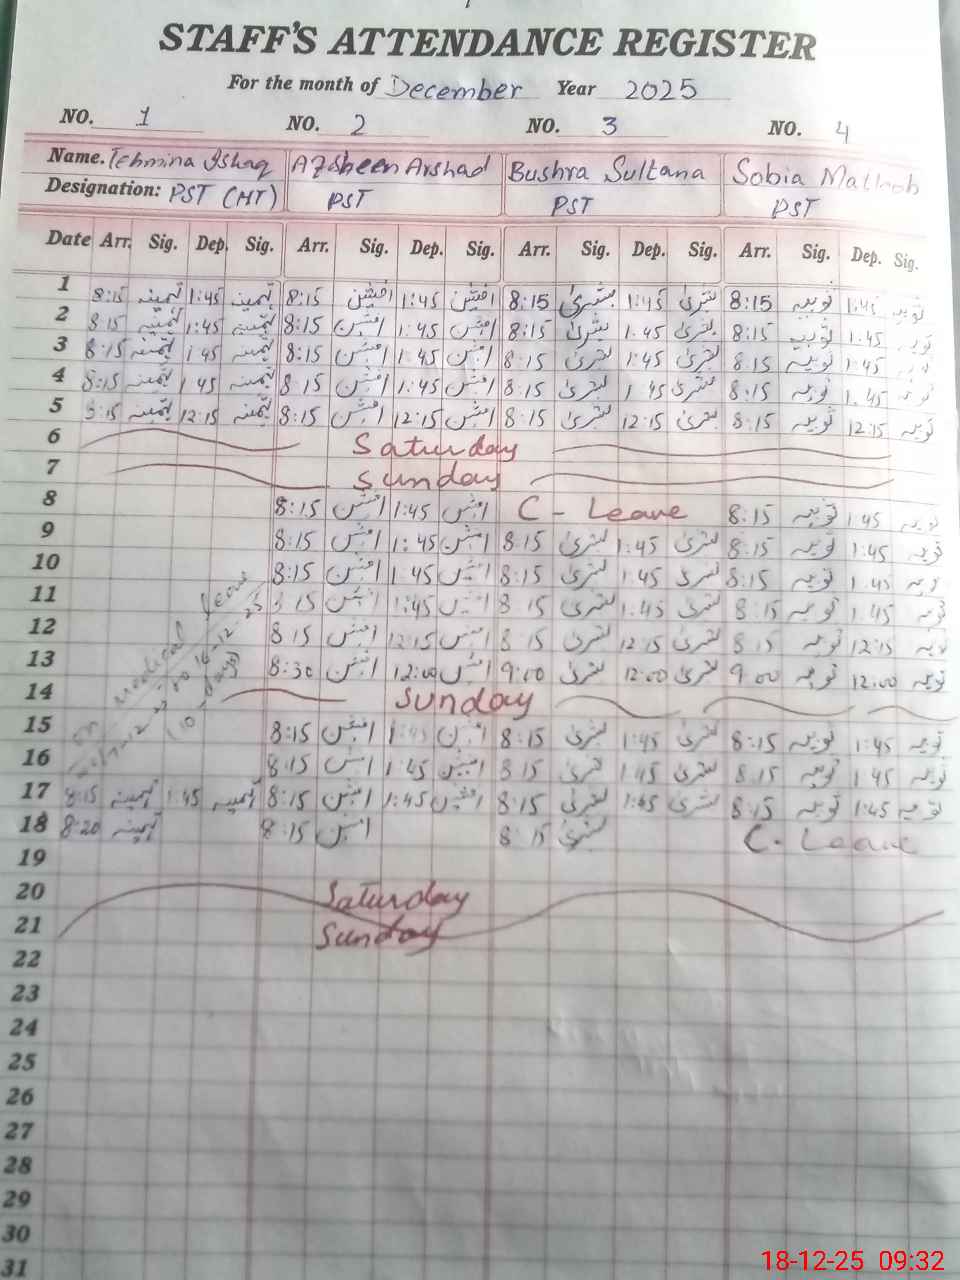 STAFF'S ATTENDANCE REGISTER
For the month of December Year 2025
NO. 1 NO. 2 NO. 3 NO. 4
Name. Tehmina Ishaq Azsheen Arshad Bushra Sultana Sobia Matloob
Designation: PST (HT) PST PST PST
Date Arr. Sig. Dep. Sig. Arr. Sig. Dep. Sig. Arr. Sig. Dep. Sig. Arr. Sig. Dep. Sig.
1 8:15 ثمینہ 1:45 ثمینہ 8:15 افشین 1:45 افشین 8:15 بشریٰ 1:45 بشریٰ 8:15 ثوبیہ 1:45 ثوبیہ
2 8:15 ثمینہ 1:45 ثمینہ 8:15 افشین 1:45 افشین 8:15 بشریٰ 1:45 بشریٰ 8:15 ثوبیہ 1:45 ثوبیہ
3 8:15 ثمینہ 1:45 ثمینہ 8:15 افشین 1:45 افشین 8:15 بشریٰ 1:45 بشریٰ 8:15 ثوبیہ 1:45
4 8:15 ثمینہ 1:45 ثمینہ 8:15 افشین 1:45 افشین 8:15 بشریٰ 1:45 بشریٰ 8:15 ثوبیہ 1:45 ثوبیہ
5 8:15 ثمینہ 12:15 ثمینہ 8:15 افشین 12:15 افشین 8:15 بشریٰ 12:15 بشریٰ 8:15 ثوبیہ 12:15 ثوبیہ
6 Saturday
7 Sunday
8 8:15 افشین 1:45 افشین C - Leave 8:15 ثوبیہ 1:45 ثوبیہ
9 8:15 افشین 1:45 افشین 8:15 بشریٰ 1:45 بشریٰ 8:15 ثوبیہ 1:45 ثوبیہ
10 8:15 افشین 1:45 افشین 8:15 بشریٰ 1:45 بشریٰ 8:15 ثوبیہ 1:45 ثوبیہ
11 8:15 افشین 1:45 افشین 8:15 بشریٰ 1:45 بشریٰ 8:15 ثوبیہ 1:45 ثوبیہ
12 8:15 افشین 12:15 افشین 8:15 بشریٰ 12:15 بشریٰ 8:15 ثوبیہ 12:15 ثوبیہ
13 8:30 افشین 12:00 افشین 9:00 بشریٰ 12:00 بشریٰ 9:00 ثوبیہ 12:00 ثوبیہ
on Medical leave
to 16-12-25
(10 days)
14 Sunday
15 8:15 افشین 1:45 افشین 8:15 بشریٰ 1:45 بشریٰ 8:15 ثوبیہ 1:45 ثوبیہ
16 8:15 افشین 1:45 افشین 8:15 بشریٰ 1:45 بشریٰ 8:15 ثوبیہ 1:45 ثوبیہ
17 8:15 ثمینہ 1:45 ثمینہ 8:15 افشین 1:45 افشین 8:15 بشریٰ 1:45 بشریٰ 8:15 ثوبیہ 1:45 ثوبیہ
18 8:20 ثمینہ 8:15 افشین 8:15 بشریٰ C. Leave
19
20 Saturday
21 Sunday
22
23
24
25
26
27
28
29
30
31
18-12-25 09:32